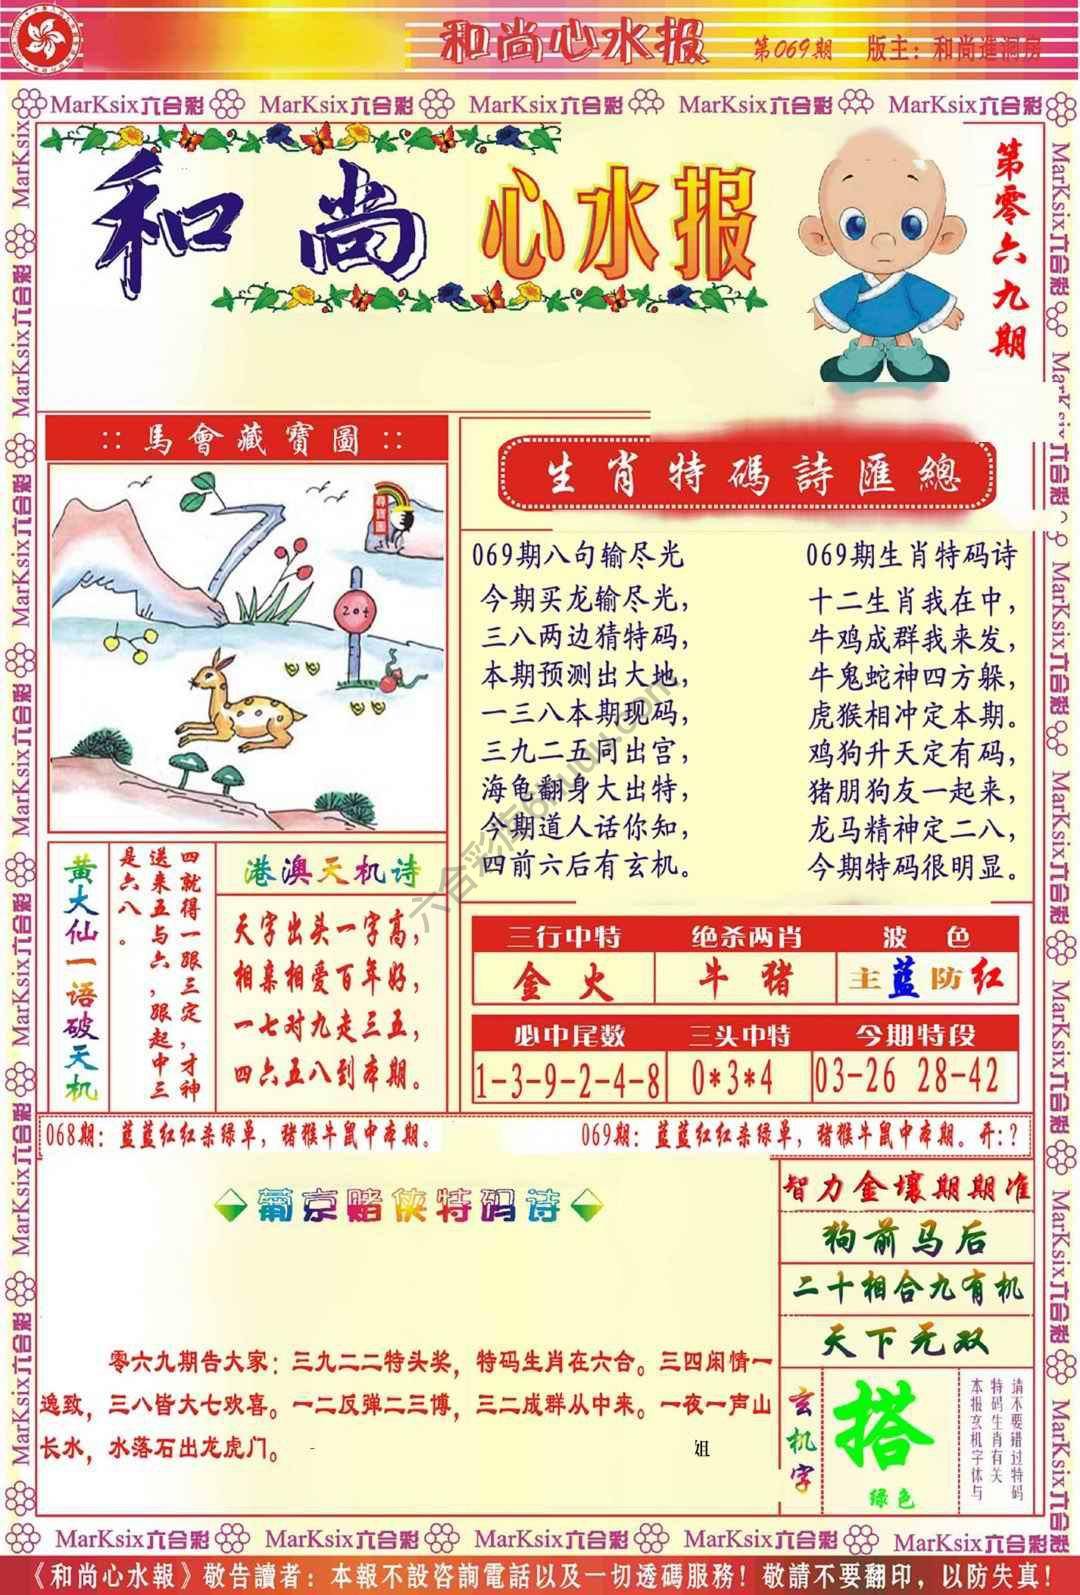 和尚心水报 第069期 版主：和尚進洞房
MarKsix六合彩 MarKsix六合彩 MarKsix六合彩 MarKsix六合彩 MarKsix六合彩
和尚心水报
第零六九期
::馬會藏寶圖::
尋寶圖
204
生肖特碼詩匯總
069期八句输尽光
今期买龙输尽光，
三八两边猜特码，
本期预测出大地，
一三八本期现码，
三九二五同出宫，
海龟翻身大出特，
今期道人话你知，
四前六后有玄机。
069期生肖特码诗
十二生肖我在中，
牛鸡成群我来发，
牛鬼蛇神四方躲，
虎猴相冲定本期。
鸡狗升天定有码，
猪朋狗友一起来，
龙马精神定二八，
今期特码很明显。
黄大仙一语破天机
四就得一跟三定，才神
送来五与六，跟起中三
是六八。
港澳天机诗
天字出头一字高，
相亲相爱百年好，
一七对九走三五，
四六五八到本期。
三行中特 绝杀两肖 波色
金火 牛猪 主蓝防红
必中尾数 三头中特 今期特段
1-3-9-2-4-8 0*3*4 03-26 28-42
068期：蓝蓝红红杀绿单，猪猴牛鼠中本期。
069期：蓝蓝红红杀绿单，猪猴牛鼠中本期。开:？
葡京赌侠特码诗
零六九期告大家：三九二二特头奖，特码生肖在六合。三四闲情一
逸致，三八皆大七欢喜。一二反弹二三博，三二成群从中来。一夜一声山
长水，水落石出龙虎门。
姐
智力金壤期期准
狗前马后
二十相合九有机
天下无双
玄机字
搭
绿色
请不要错过特码
特码生肖有关
本报玄机字体与
MarKsix六合彩 MarKsix六合彩 MarKsix六合彩 MarKsix六合彩 MarKsix六合彩
《和尚心水報》敬告讀者：本報不設咨詢電話以及一切透碼服務！敬請不要翻印，以防失真！